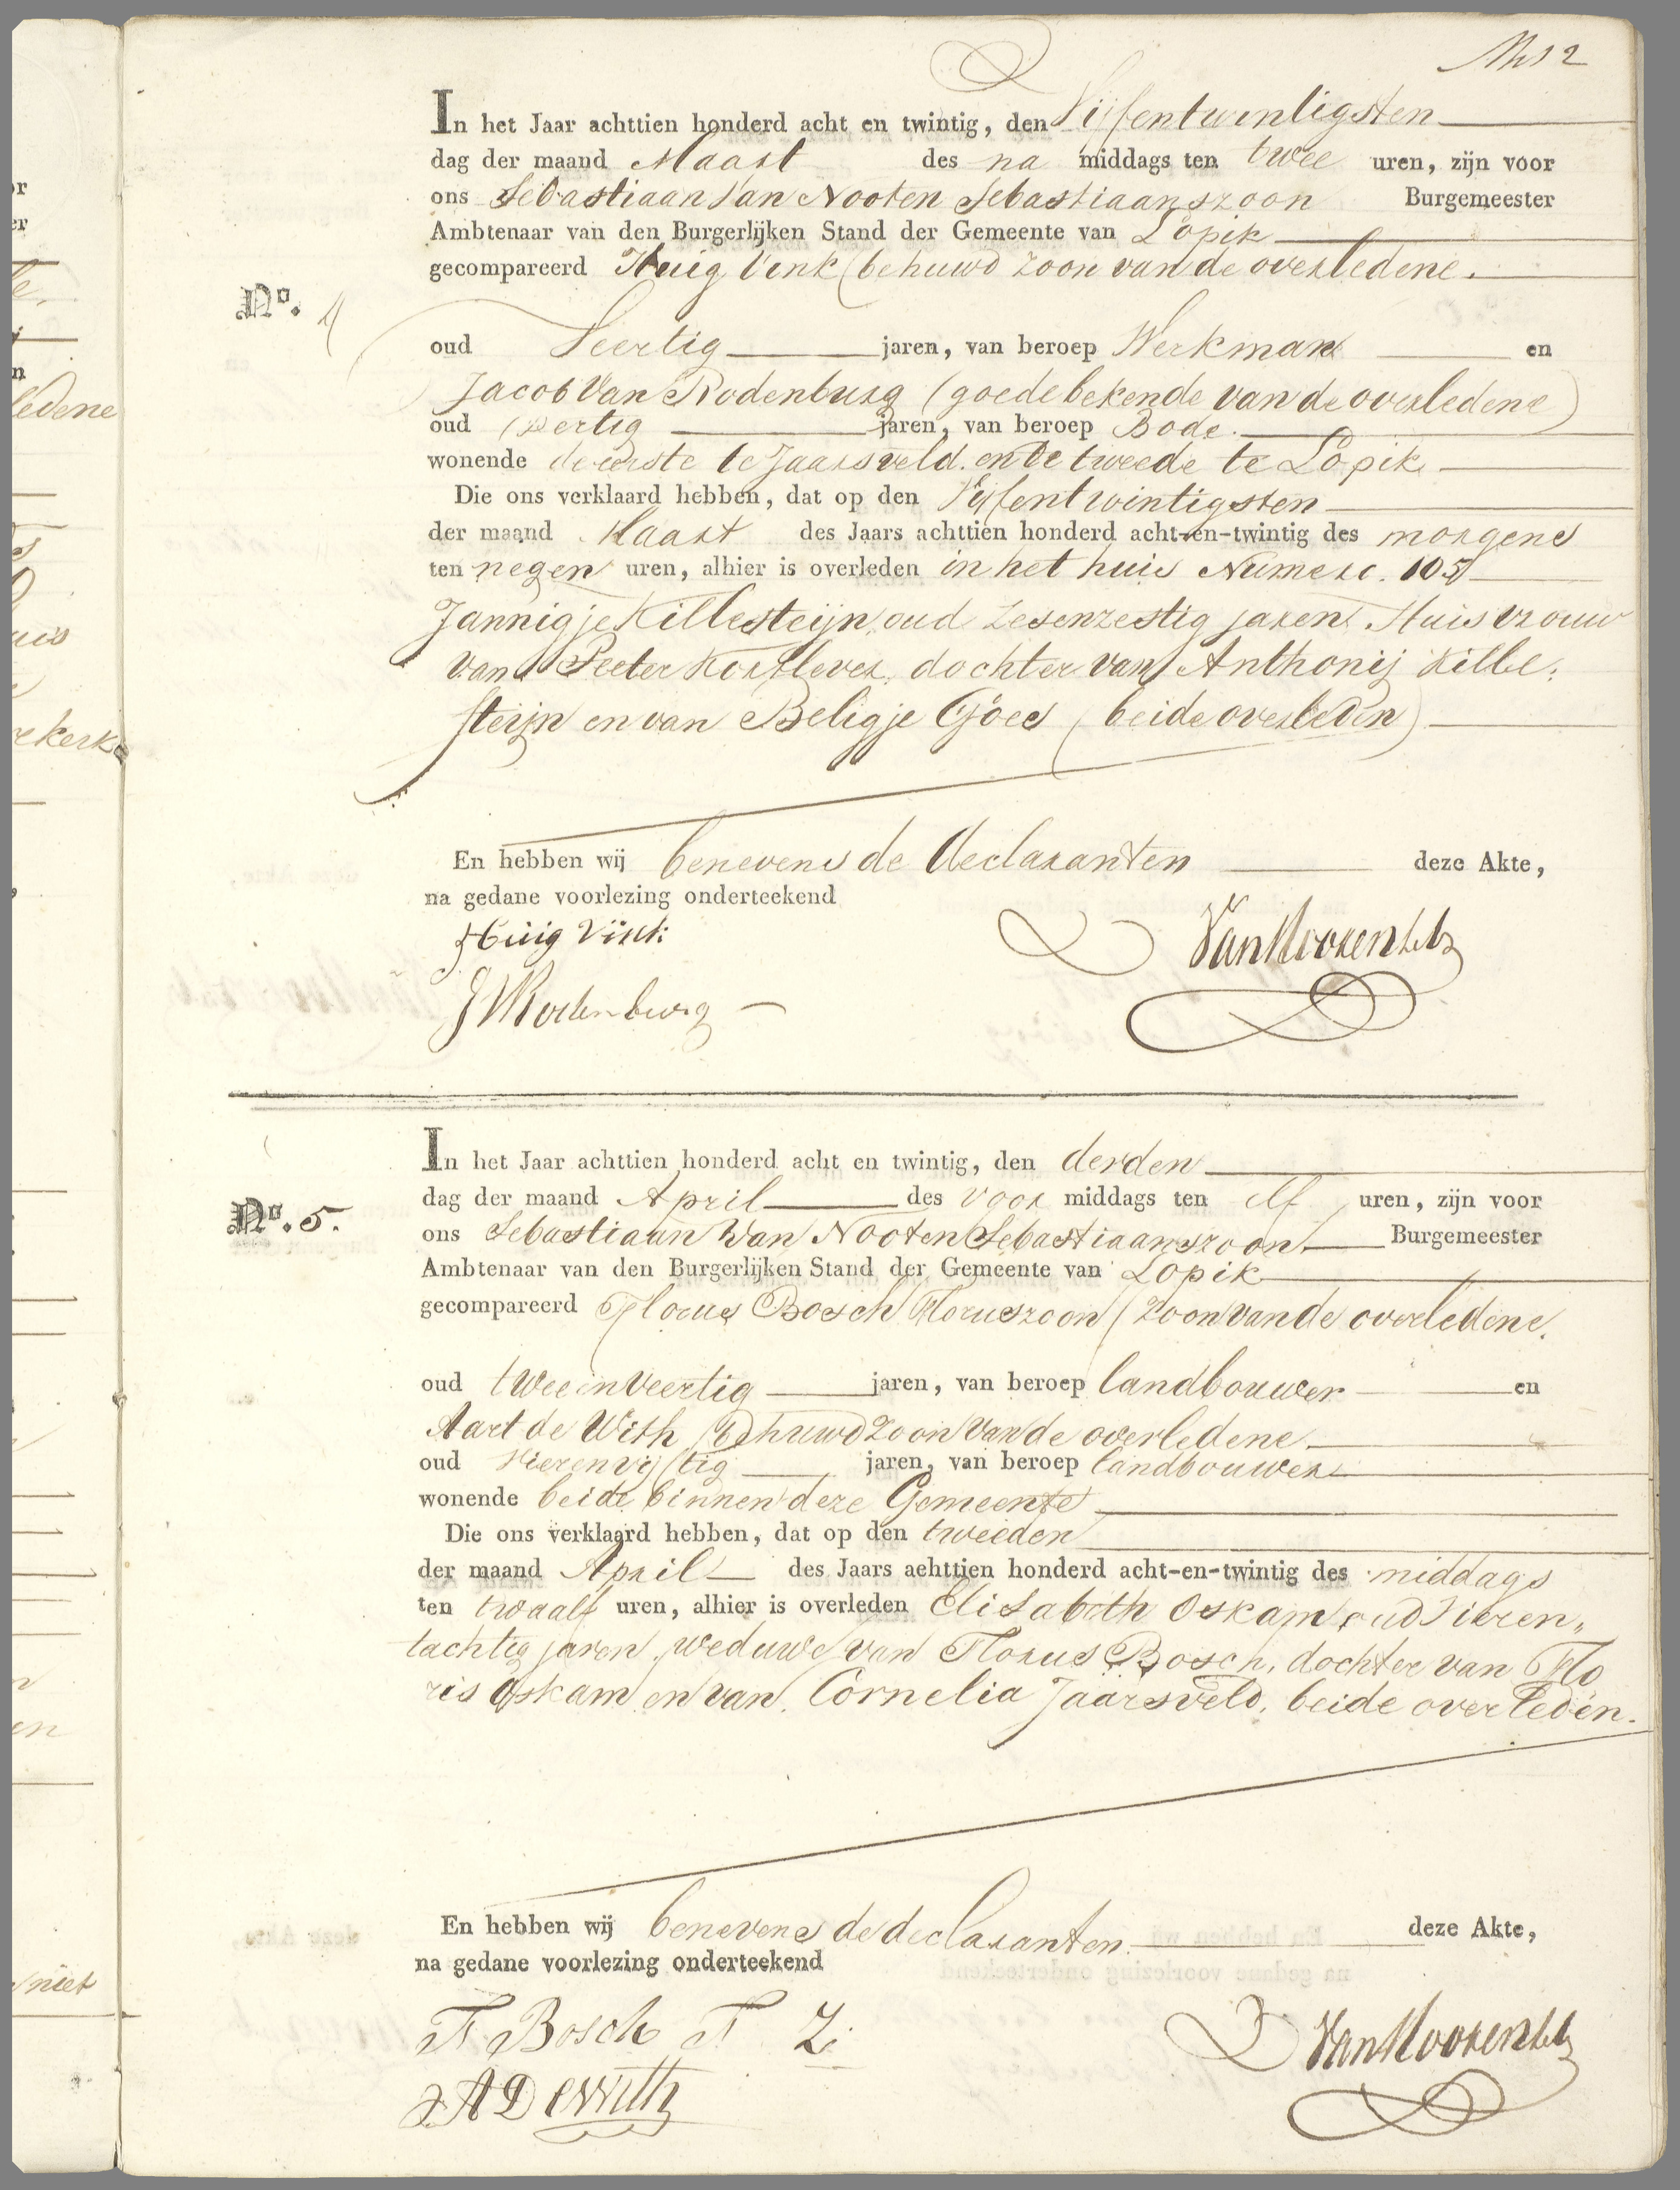 In het Jaar achttien honderd acht en twintig, den Vijfentwintigsten
dag der maand Maart des na middags ten twee uren, zijn voor
ons Sebastiaan Van Nooten Sebastiaanszoon Burgemeester
Ambtenaar van den Burgerlijken Stand der Gemeente van Lopik
gecompareerd Huig Vink (behuwd zoon van de overledene.
No. 4
oud Veertig jaren, van beroep Werkman en
Jacob Van Rodenburg (goede bekende van de overledene)
oud dertig jaren, van beroep Bode.
wonende de eerste te Jaarsveld. en de tweede te Lopik
Die ons verklaard hebben, dat op den Vijfentwintigsten
der maand Maart des Jaars achttien honderd acht-en-twintig des morgens
ten negen uren, alhier is overleden in het huis Numero. 105
Jannigje Killesteijn, oud Zesenzestig jaren Huisvrouw
van Peeter Kortlever, dochter van Anthonij Kille,
steijn en van Beligje Goes (beide overleden)
En hebben wij benevens de declaranten deze Akte,
na gedane voorlezing onderteekend
Huig Vink
JVRodenburg
In het Jaar achttien honderd acht en twintig, den derden
dag der maand April des voor middags ten elf uren, zijn voor
No. 5.
ons Sebastiaan Van Nooten Sebastiaanszoon Burgemeester
Ambtenaar van den Burgerlijken Stand der Gemeente van Lopik
gecompareerd Florus Bosch Floruszoon (zoon van de overledene.
oud tweeinveertig jaren, van beroep landbouwer en
Aart de With (Behuwd zoon van de overledene
oud Vierenvijftig jaren, van beroep landbouwer
wonende beide binnen deze Gemeente
Die ons verklaard hebben, dat op den tweeden
der maand April des Jaars aehttien honderd acht-en-twintig des middags
ten twaalf uren, alhier is overleden Elisabeth Oskam, oud Vieren,,
tachtig jaren, weduwe van Florus Bosch, dochter van Flo
ris Oskam en van Cornelia Jaarsveld, beide overleden.
En hebben wij benevens de declaranten deze Akte,
na gedane voorlezing onderteekend
F Bosch F Z
A D With